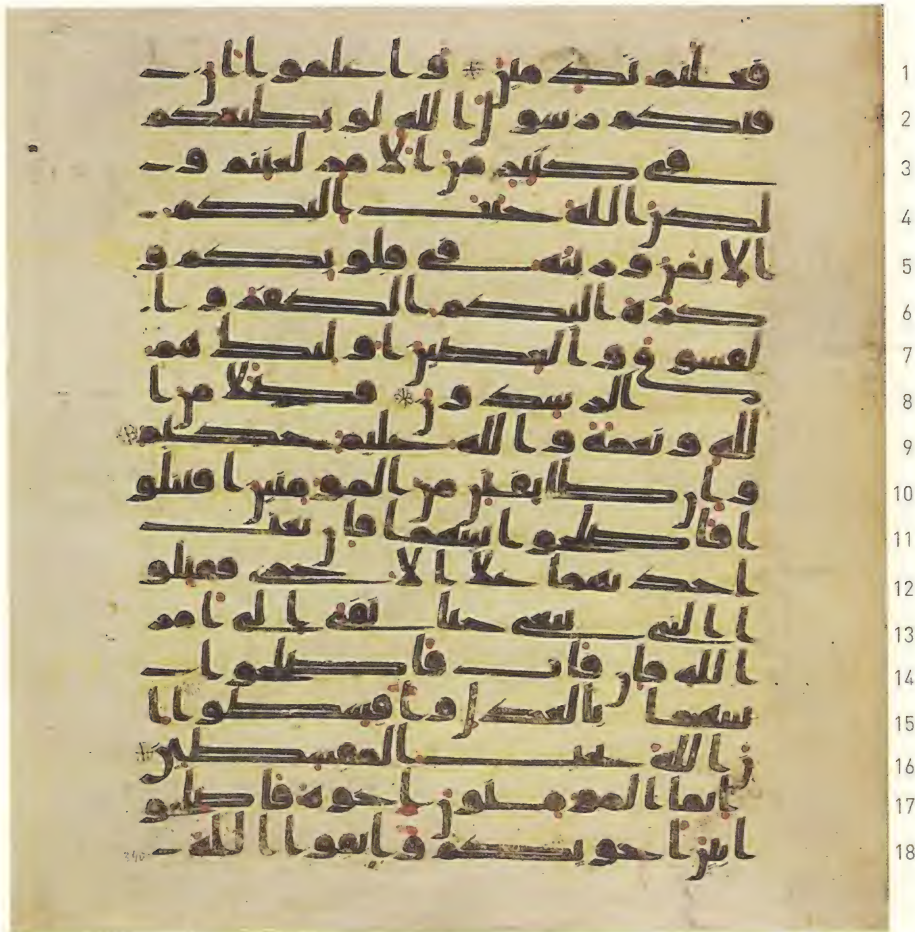 1 فعلتم ندمين * واعلموا ان
2 فيكم رسول الله لو يطيعكم
3 في كثير من الامر لعنتم و
4 لكن الله حبب اليكم
5 الايمن وزينه في قلوبكم و
6 كره اليكم الكفر وا
7 لفسوق والعصين اوليك هم
8 الرشدون * فضلا من ا
9 لله ونعمة والله عليم حكيم *
10 وان طايفتين من المومنين اقتتلو
11 ا فاصلحوا بينهما فان بغت
12 احديهما على الاخرى فقتلو
13 ا التي تبغي حتى تفي الى امر
14 الله فان فات فاصلحوا
15 بينهما بالعدل واقسطوا ا
16 ن الله يحب المقسطين *
17 انما المومنون اخوة فاصلحو
18 ا بين اخويكم واتقوا الله
340